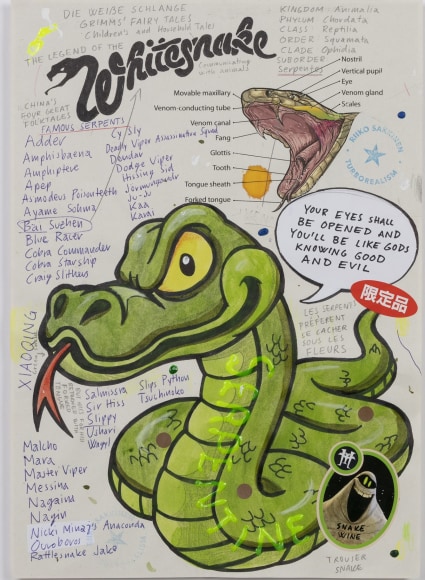 DIE WEIßE SCHLANGE
GRIMMS' FAIRY TALES
Children's and Household Tales
THE LEGEND OF THE
Whitesnake
Communicating
with animals
KINGDOM: Animalia
PHYLUM Chordata
CLASS Reptilia
ORDER Squamata
CLADE Ophidia
SUBORDER
Serpentes
CHINA'S
FOUR GREAT
FOLKTALES
FAMOUS SERPENTS
Adder
Amphisbaena
Amphiptere
Apep
Asmodeus Poisonteeth
Ayame Sohma
Bai Suzhen
Blue Racer
Cobra Commander
Cobra Starship
Craig Slithus
Cy Sly
Deadly Viper Assassination Squad
Dendar
Dodge Viper
Hissing Sid
Jörmungandr
Ju-Ju
Kaa
Karai
Nostril
Vertical pupil
Eye
Venom gland
Scales
Movable maxillary
Venom-conducting tube
Venom canal
Fang
Glottis
Tooth
Tongue sheath
Forked tongue
KIIKO SAKUREN
TURBOREALISM
YOUR EYES SHALL
BE OPENED AND
YOU'LL BE LIKE GODS
KNOWING GOOD
AND EVIL
限定品
LES SERPENTS
PRÉFÈRENT
SE CACHER
SOUS LES
FLEURS
XIAOQING
SERPENTINE
Salmissra
Sir Hiss
Slippy
Ushari
Slips Python
Tsuchinoko
Malcho
Mara
Master Viper
Messina
Nagaina
Nagini
Nicki Minaj's Anaconda
Ouroboros
Rattlesnake Jake
SNAKE
WINE
TROUSER
SNAKE